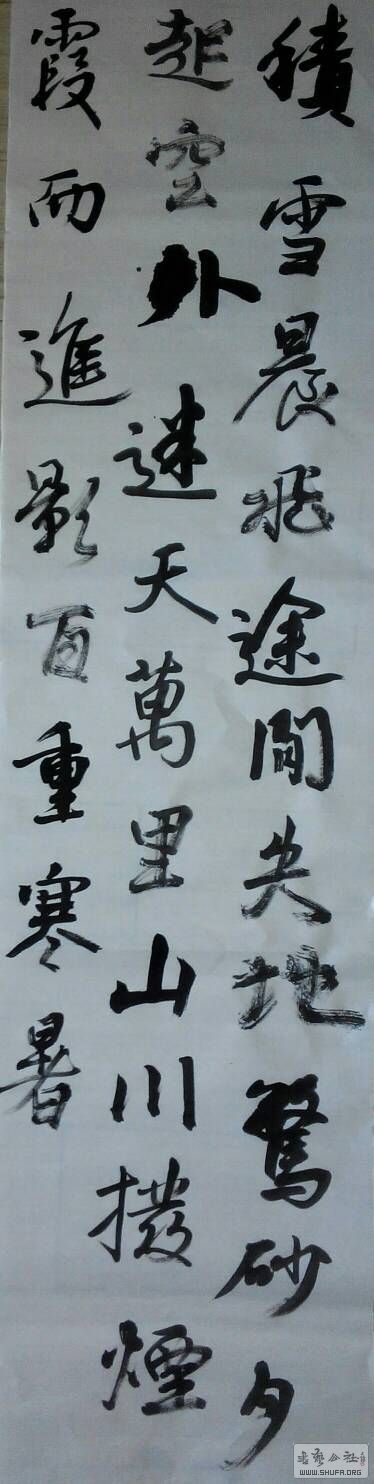 積雪晨飛途閒失地驚砂夕
起空外迷天萬里山川撥煙
霞而進影百重寒暑
书艺公社
WWW.SHUFA.ORG